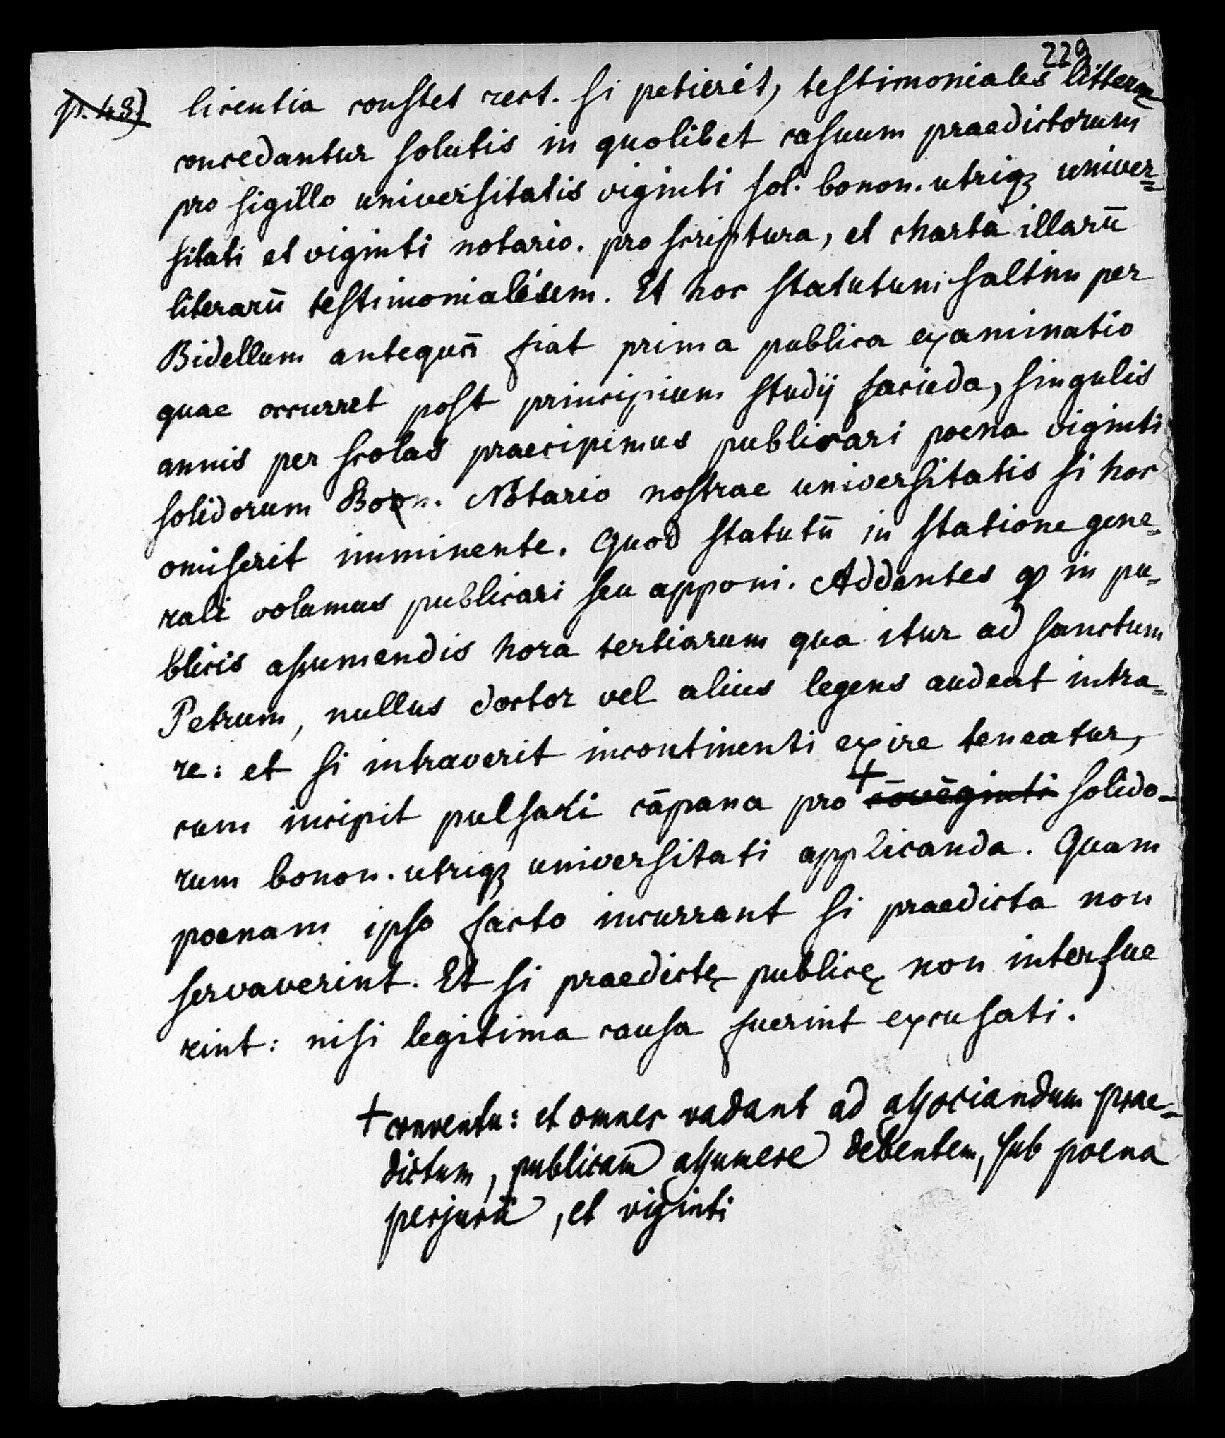 229
p. 48) licentia constet rect. si petierét, testimoniales litterę
concedantur solutis in quolibet casuum praedictorum
pro sigillo universitatis viginti sol. bonon. utriqꝫ univer=
sitati et viginti notario. pro scriptura, et charta illarū
literarū testimonialésem. Et hoc statutum saltim per
Bidellum antequā fiat prima publica examinatio
quae occurret post principium studij facieda, singulis
annis per scolas praecipimus publicari poena viginti
solidorum Bon. Notario nostrae universitatis si hoc
omiserit imminente. Quod statutū in statione gene=
rali volumus publicari seu apponi. Addentes ꝙ in pu=
blicis assumendis hora tertiarum qua itur ad sanctum
Petrum, nullus doctor vel alius legens audeat intra=
re: et si intraverit incontinenti exire teneatur,
cum incipit pulsari cāpana pro + cōvēginti solido=
rum bonon. utriqꝫ universitati applicanda. Quam
poenam ipso facto incurrant si praedicta non
servaverint. Et si praedictę publicę non interfue
rint: nisi legitima causa fuerint excusati.
+ conventu: et omnes vadant ad associandum prae=
dictum, publicam assumere debentem, sub poena
perjurii, et viginti